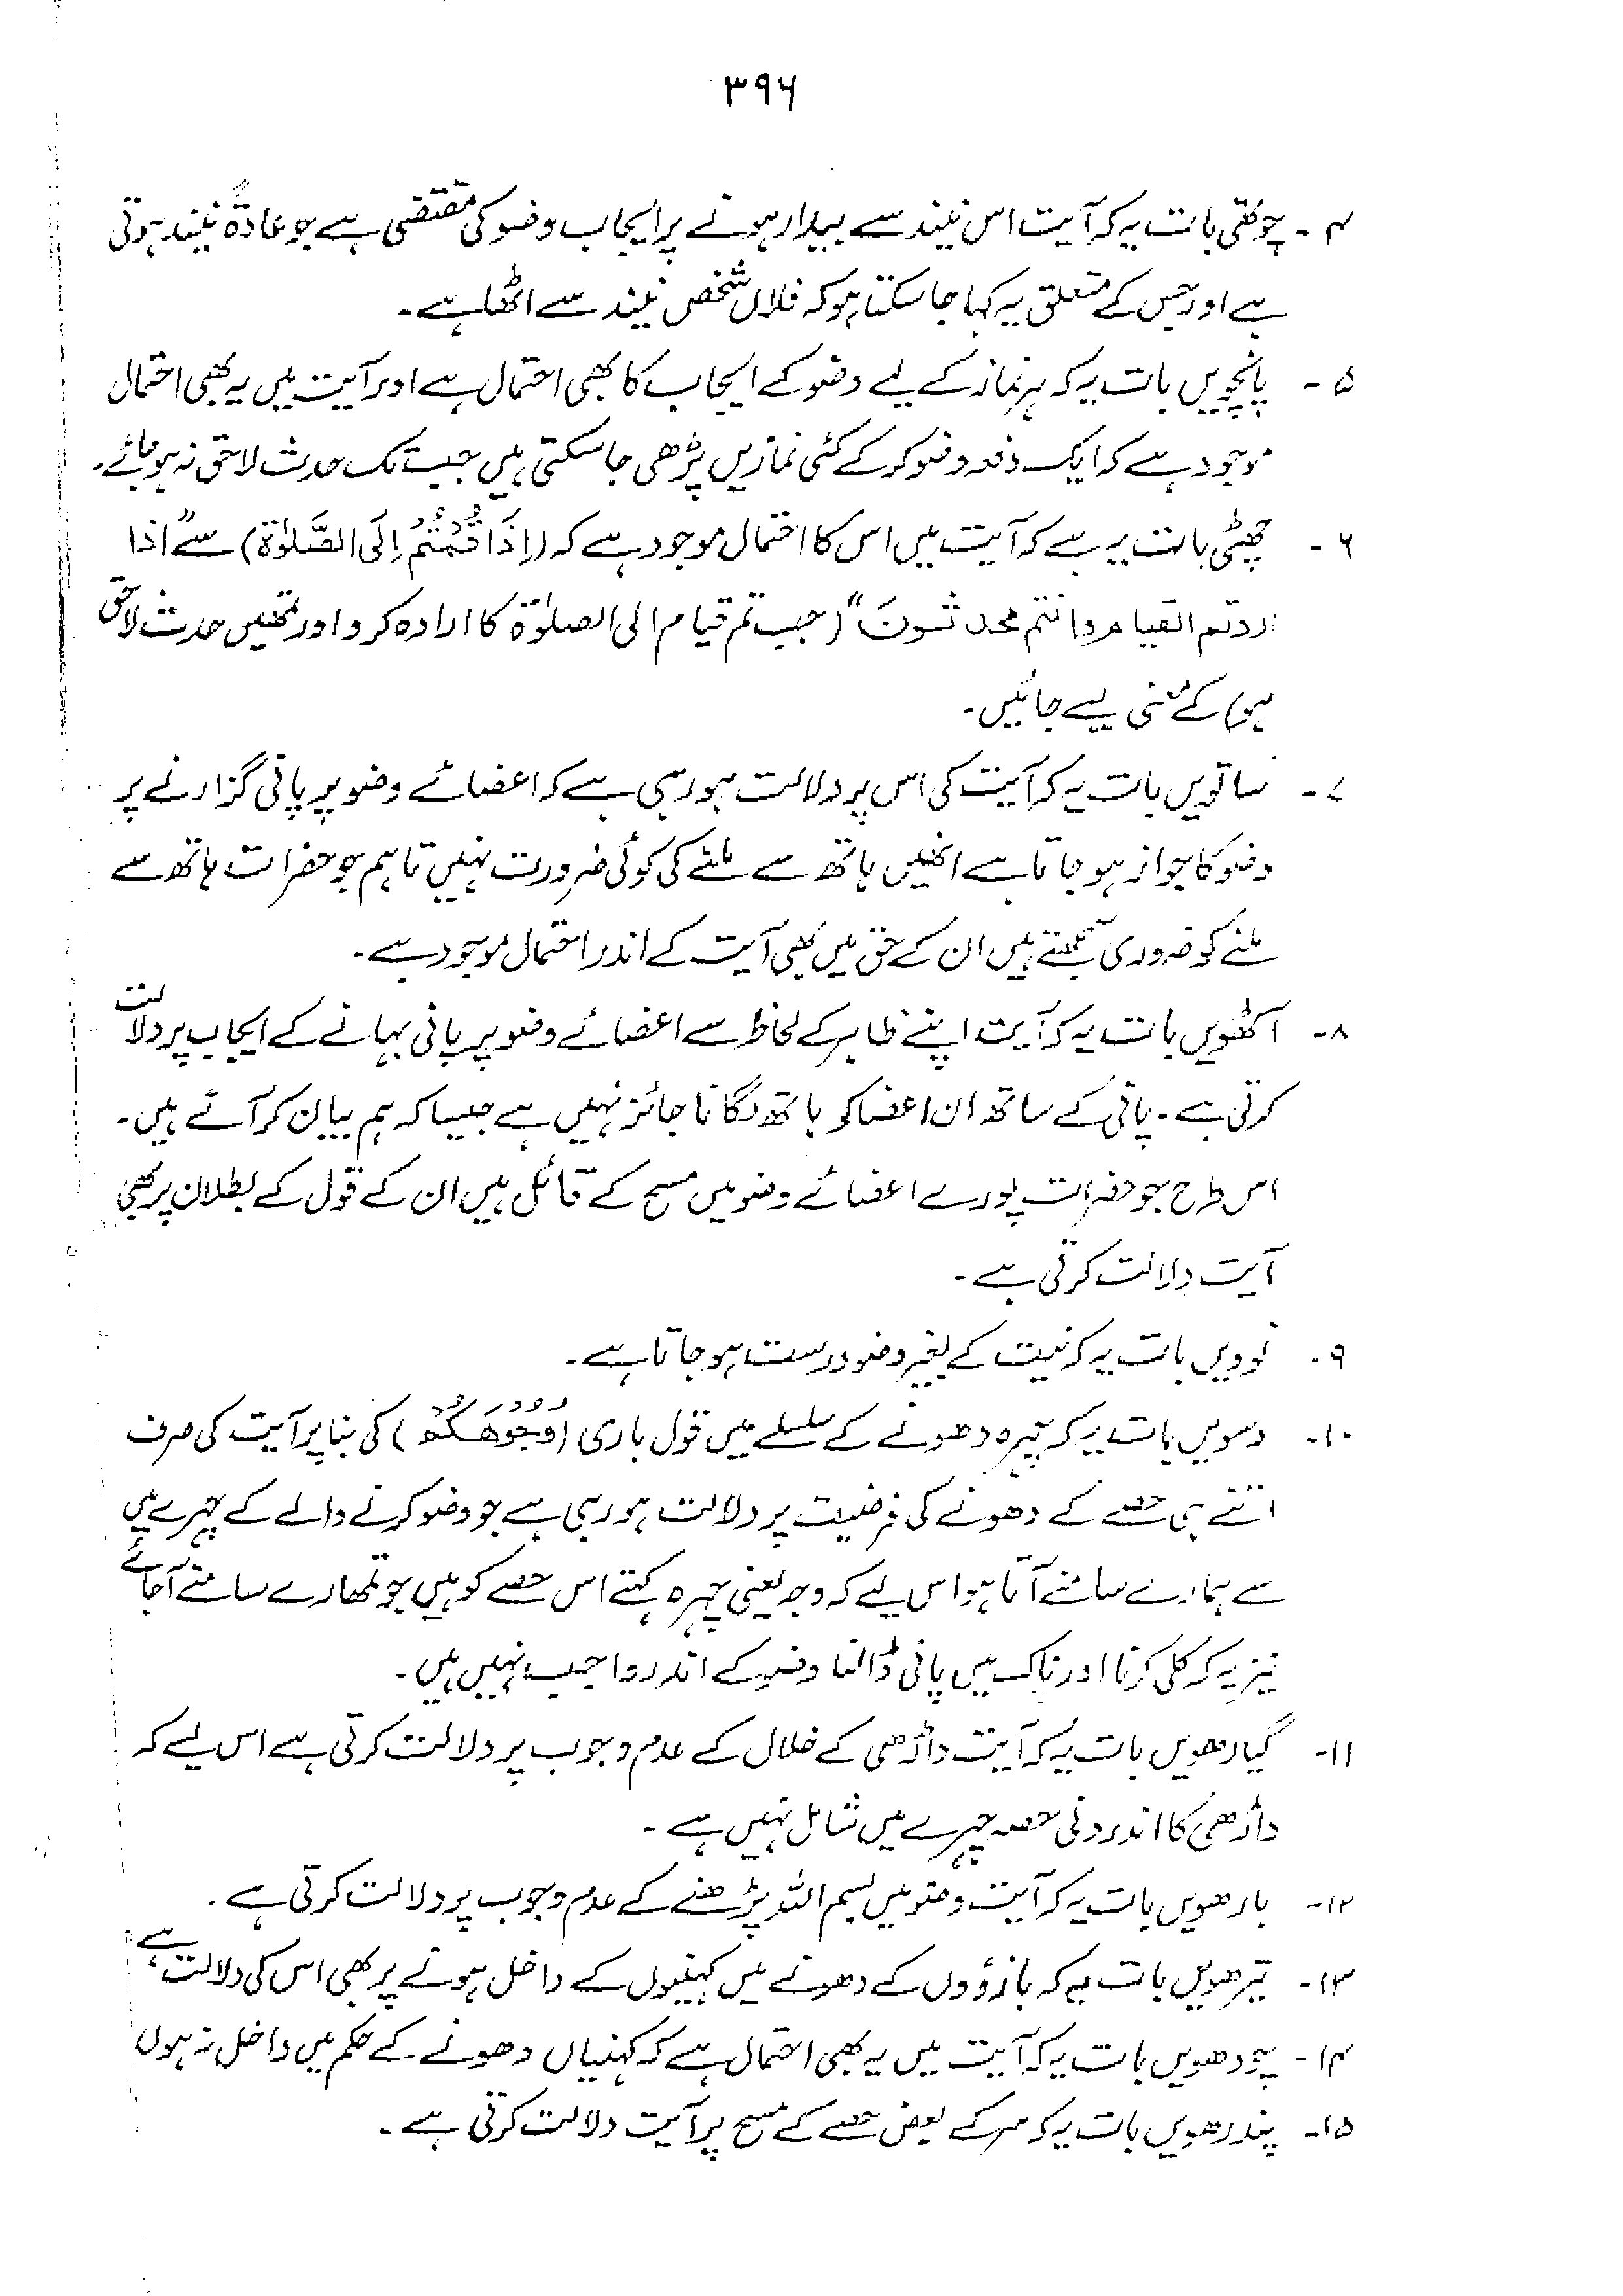 ۳۹۶
۴- چوتھی بات یہ کہ آیت اس نیند سے بیدار ہونے پر ایجاب وضو کی مقتضی ہے جو عادۃً نیند ہوتی
ہے اور جس کے متعلق یہ کہا جا سکتا ہو کہ فلاں شخص نیند سے اٹھا ہے۔
۵- پانچویں بات یہ کہ ہر نماز کے لیے وضو کے ایجاب کا بھی احتمال ہے اور آیت میں یہ بھی احتمال
موجود ہے کہ ایک دفعہ وضو کر کے کئی نمازیں پڑھی جا سکتی ہیں جب تک حدث لاحق نہ ہو جائے۔
۶- چھٹی بات یہ ہے کہ آیت میں اس کا احتمال موجود ہے کہ (اِذَا قُمْتُمْ اِلَى الصَّلٰوۃِ) سے "اذا
اردتم القیام وانتم محدثون" (جب تم قیام الی الصلوٰۃ کا ارادہ کرو اور تمھیں حدث لاحق
ہو) کے معنی لیے جائیں۔
۷- ساتویں بات یہ کہ آیت کی اس پر دلالت ہو رہی ہے کہ اعضائے وضو پر پانی گزارنے پر
وضو کا جواز ہو جاتا ہے انھیں ہاتھ سے ملنے کی کوئی ضرورت نہیں تاہم جو حضرات ہاتھ سے
ملنے کو ضروری سمجھتے ہیں ان کے حق میں بھی آیت کے اندر احتمال موجود ہے۔
۸- آٹھویں بات یہ کہ آیت اپنے ظاہر کے لحاظ سے اعضائے وضو پر پانی بہانے کے ایجاب پر دلالت
کرتی ہے۔ پانی کے ساتھ ان اعضا کو ہاتھ لگانا جائز نہیں ہے جیسا کہ ہم بیان کر آئے ہیں۔
اس طرح جو حضرات پورے اعضائے وضو میں مسح کے قائل ہیں ان کے قول کے بطلان پر بھی
آیت دلالت کرتی ہے۔
۹- نوویں بات یہ کہ نیت کے بغیر وضو درست ہو جاتا ہے۔
۱۰- دسویں بات یہ کہ چہرہ دھونے کے سلسلے میں قول باری (وُجُوْهَكُمْ) کی بنا پر آیت کی صرف
اتنے ہی حصے کے دھونے کی فرضیت پر دلالت ہو رہی ہے جو وضو کرنے والے کے چہرے میں
سے ہمارے سامنے آتا ہو اس لیے کہ وجہ یعنی چہرہ کہتے اس حصے کو ہیں جو تمھارے سامنے آجائے
نیز یہ کہ کلی کرنا اور ناک میں پانی ڈالنا وضو کے اندر واجب نہیں ہیں۔
۱۱- گیارھویں بات یہ کہ آیت داڑھی کے خلال کے عدم وجوب پر دلالت کرتی ہے اس لیے کہ
داڑھی کا اندرونی حصہ چہرے میں شامل نہیں ہے۔
۱۲- بارھویں بات یہ کہ آیت وضو میں بسم اللہ پڑھنے کے عدم وجوب پر دلالت کرتی ہے۔
۱۳- تیرھویں بات یہ کہ بازوؤں کے دھونے میں کہنیوں کے داخل ہونے پر بھی اس کی دلالت ہے،
۱۴- چودھویں بات یہ کہ آیت میں یہ بھی احتمال ہے کہ کہنیاں دھونے کے حکم میں داخل نہ ہوں
۱۵- پندرھویں بات یہ کہ سر کے بعض حصے کے مسح پر آیت دلالت کرتی ہے۔